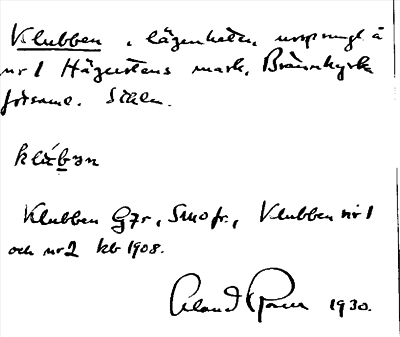 Klubben, lägenheten, ursprungl å
nr 1 Hägerstens mark, Brännkyrka
församl. Sthlm.
klúbən
Klubben Gzr, Smofr., Klubben nr 1
och nr 2 kb 1908.
1930.